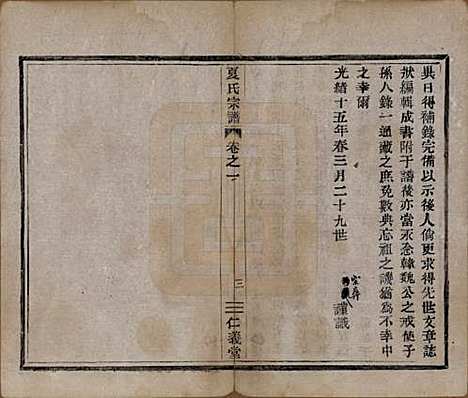 異日得補錄完備以示後人倘更求得先世文章誌
狀編輯成書附于譜後亦當永念韓魏公之戒使子
孫人錄一通藏之庶免數典忘祖之譏猶為不幸中
之幸爾
光緒十五年春三月二十九世
謹識
夏氏宗譜
卷之一
三
仁義堂